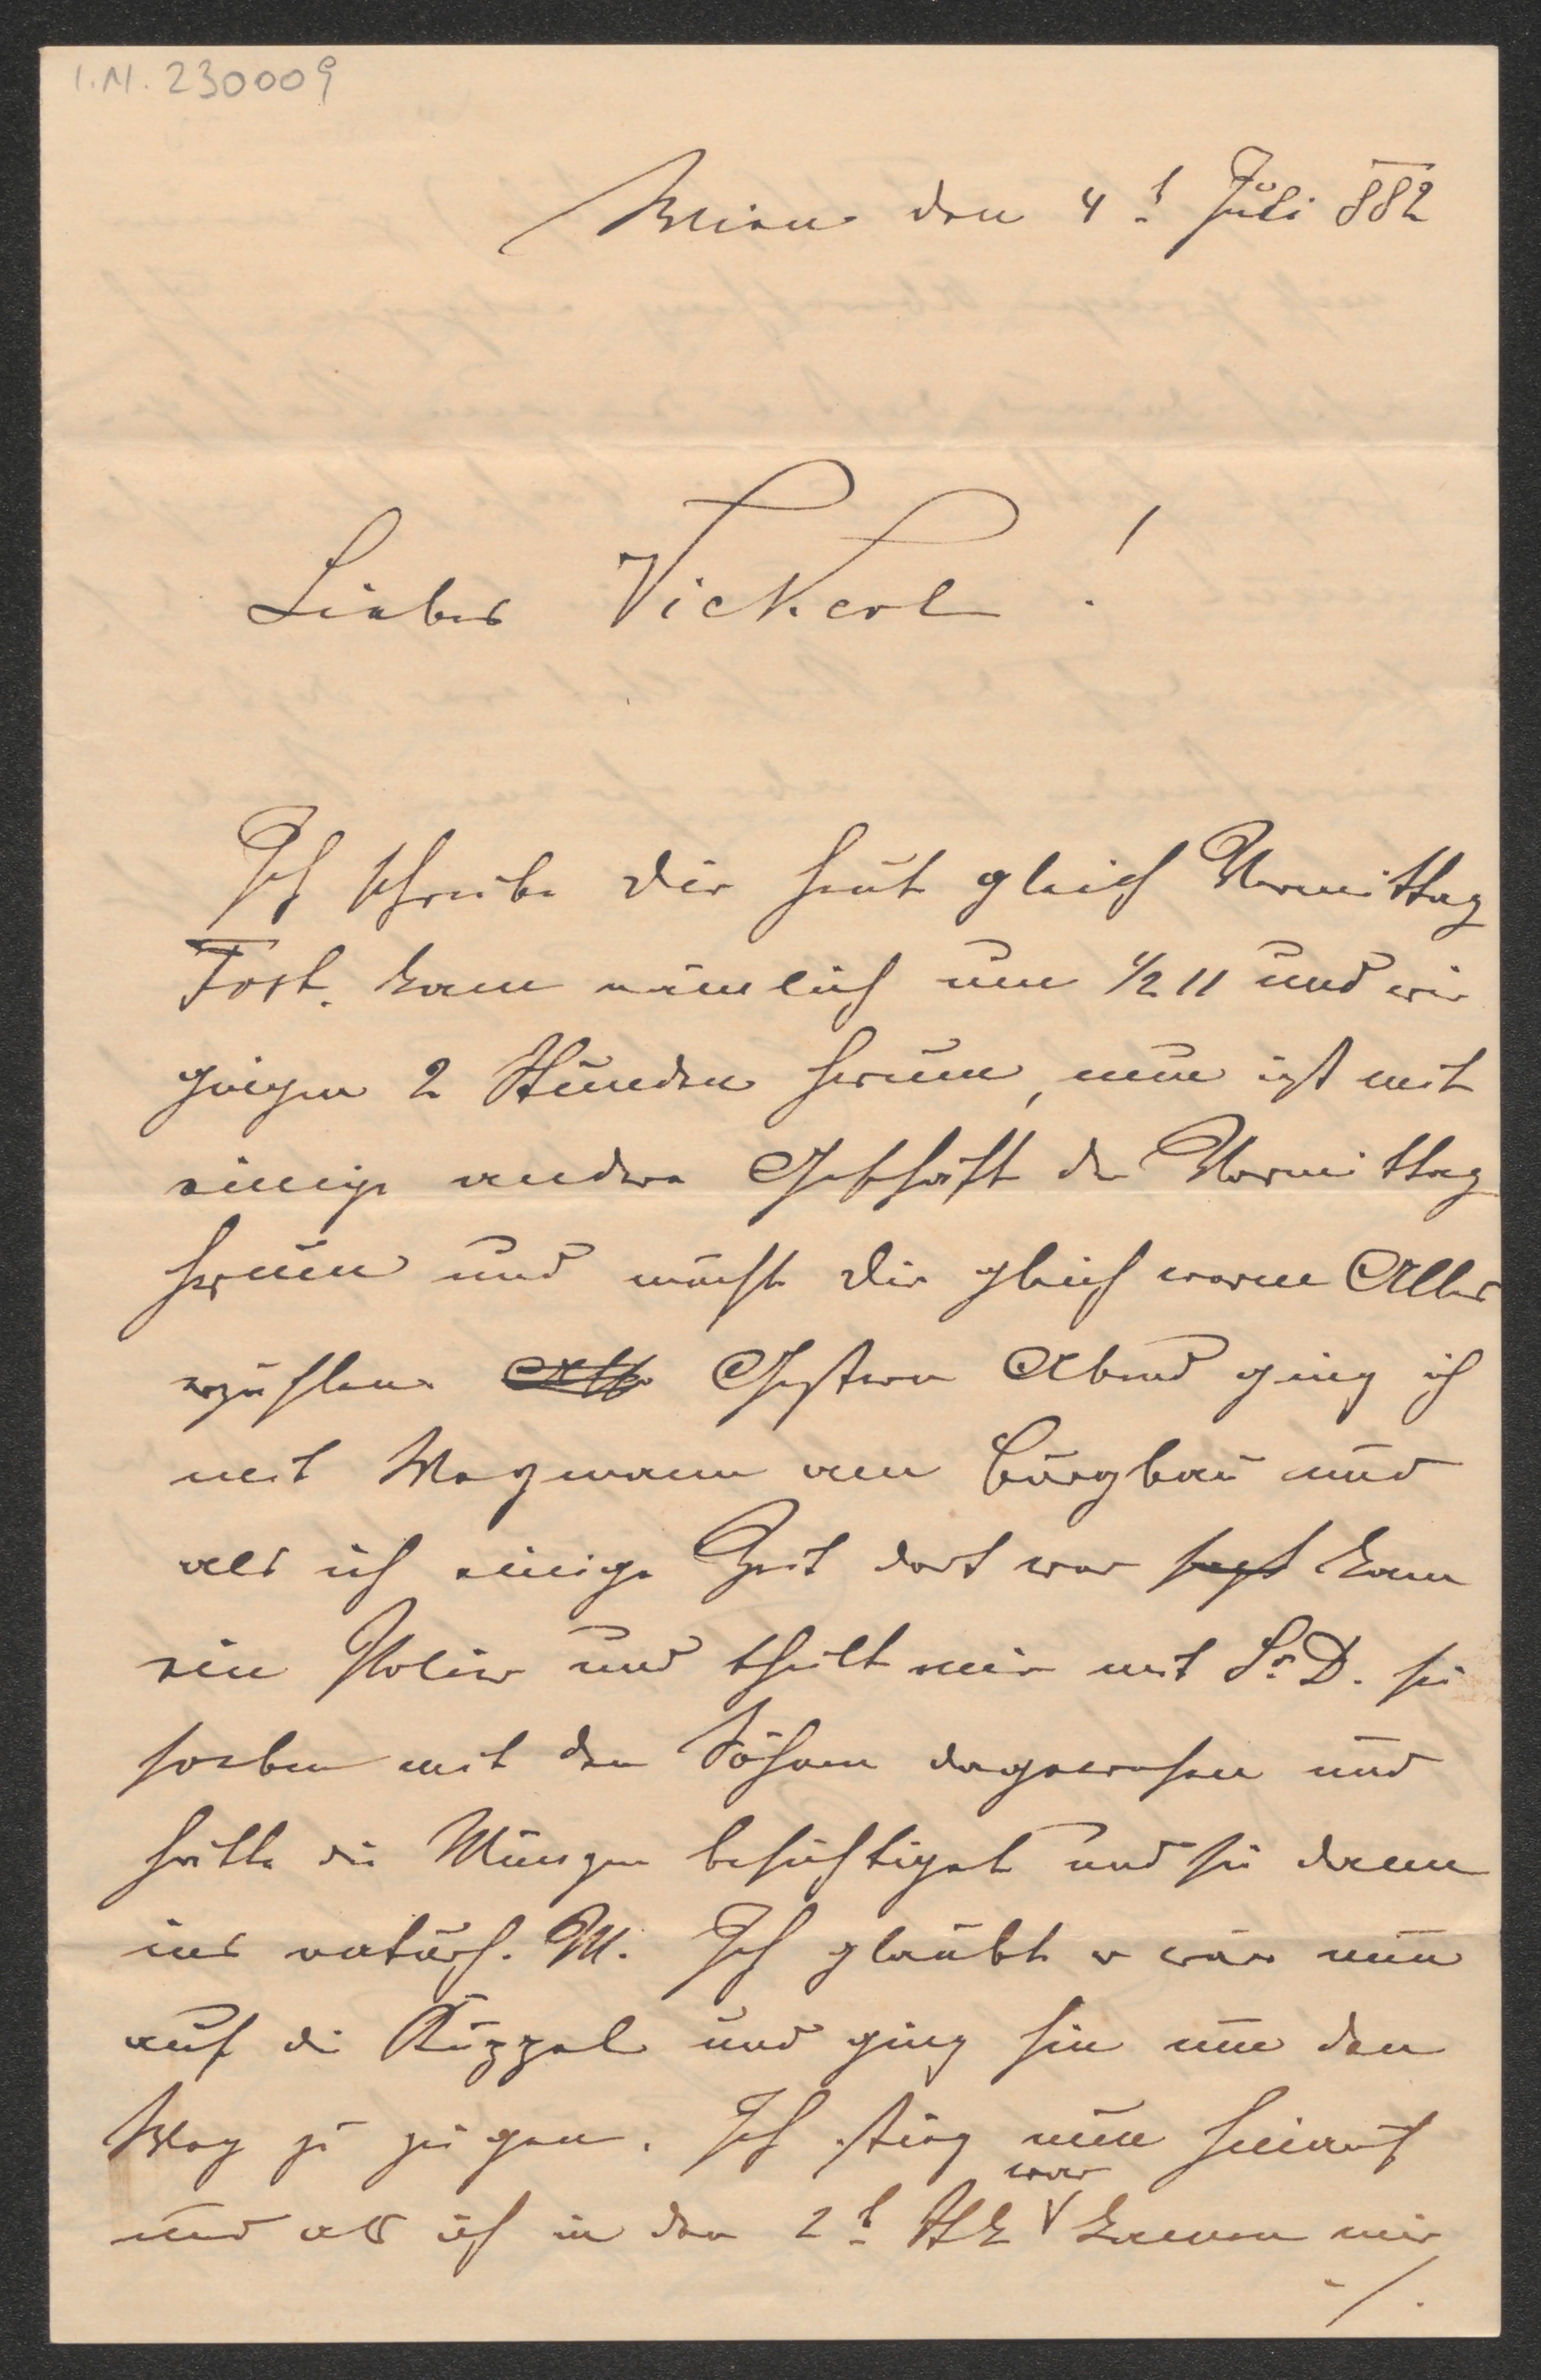 I.N. 230009
Wien den 4t Juli 882
Liebes Vickerl!
Ich schreibe Dir heut gleich Vormittag
Först. kam nämlich um 1/2 11 und wir
gingen 2 Stunden herum, nun ist mit
einige andere Geschäft der Vormittag
herum und möcht Dir gleich warm Alles
erzählen Gestern Abend ging ich
mit Wegmann am Burgbau und
als ich einige Zeit dort war kam
ein Polier und theilt mir mit Sr. D. sei
soeben mit den Söhnen dagewesen und
hätte die Münzen besichtiget und sei dann
ins naturh. M. Ich glaubt er wär nun
auf die Kuppel und ging hin um den
Weg zu zeigen. Ich stieg nun hinauf
und als ich in den 2t Stk war kamen mir
./.